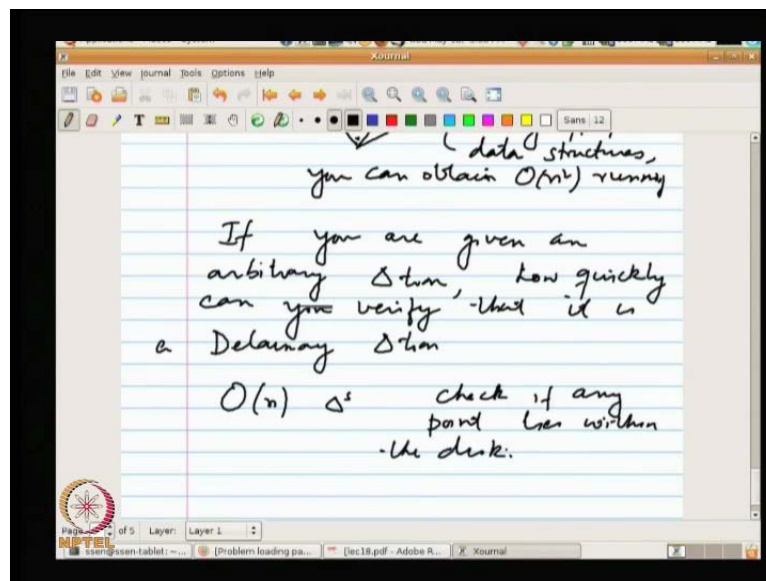 Xournal
File Edit View Journal Tools Options Help
Sans 12
data structures,
you can obtain O(n²) running
If you are given an
arbitrary Δtion, how quickly
can you verify that it is
a Delaunay Δtion
O(n) Δs check if any
point lies within
the disk.
Page of 5 Layer: Layer 1
NPTEL
ssen@ssen-tablet: ~... [Problem loading pa... [lec18.pdf - Adobe R... Xournal